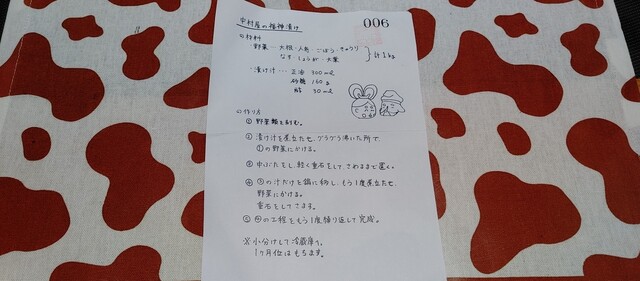 中村屋の福神漬け
006
○材料
野菜…大根・人参・ごぼう・きゅうり
なす・しょうが・大葉
計1kg
・漬け汁…正油 300ml
砂糖 160g
酢 30ml
○作り方
① 野菜類を刻む。
② 漬け汁を煮立たせ、グラグラ沸いた所で
①の野菜にかける。
③ 中ぶたをし、軽く重石をして、さめるまで置く。
④ ③の汁だけを鍋に移し、もう1度煮立たせ、
野菜にかける。
重石をしてさます。
⑤ ④の工程をもう1度繰り返して完成。
※小分けして冷蔵庫で。
1ヶ月位はもちます。